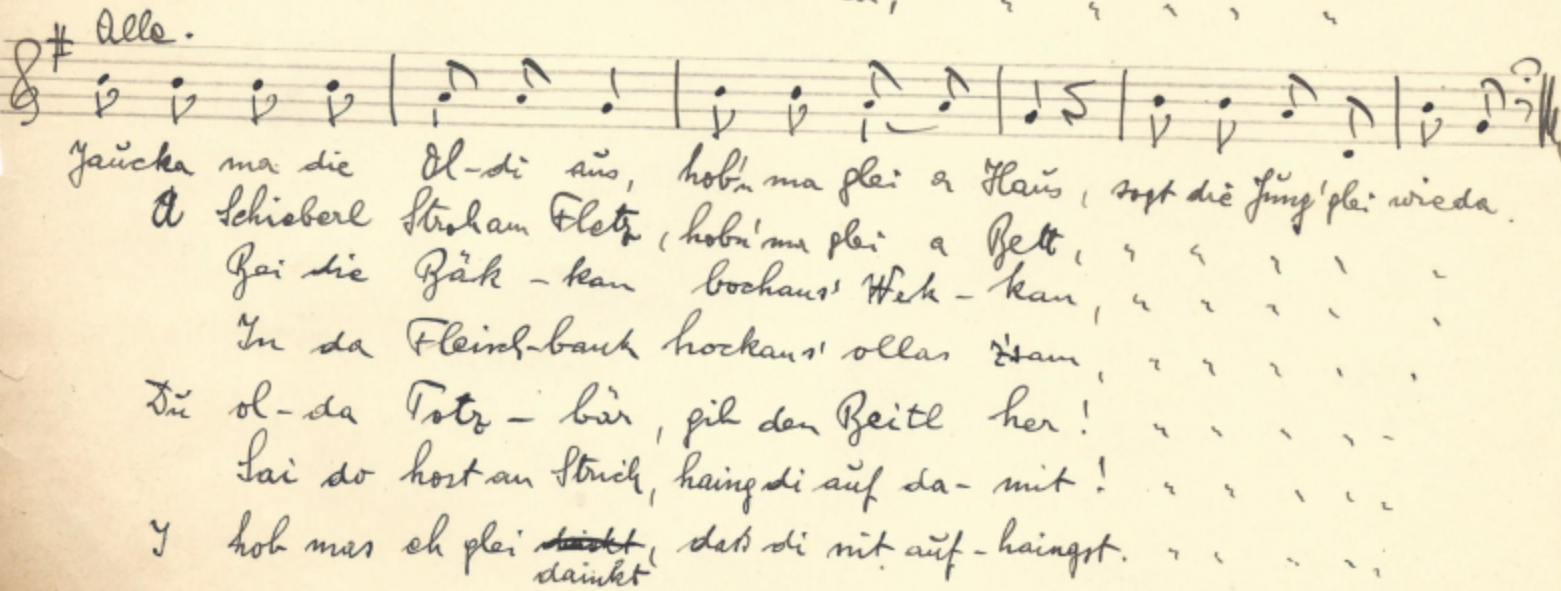 " " " " "
Alle.
Jaucka ma die Ol-di aus, hob'n ma glei a Haus, sogt die Jung' glei wieda.
A Schieberl Stroh am Fletz, hobn' ma glei a Bett, " " " " "
Bei die Bäk-kan bochans' Wek-kan, " " " " "
In da Fleisch-bank hockans' ollas z'sam, " " " " "
Du ol-da Totz-bär, gib den Beitl her! " " " " "
Sai do host an Strick, haing di auf da-mit! " " " " "
I hob mas eh glei dainkt, daß di nit auf-haingst. " " " " "